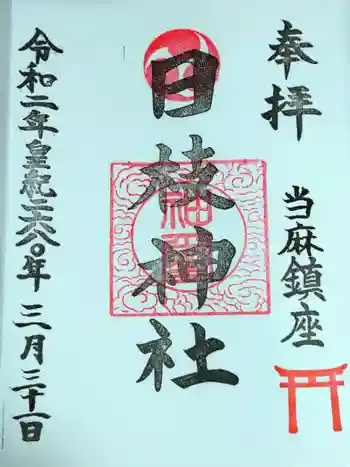 奉拝
当麻鎮座
日枝神社
令和二年皇紀二六八〇年 三月三十一日